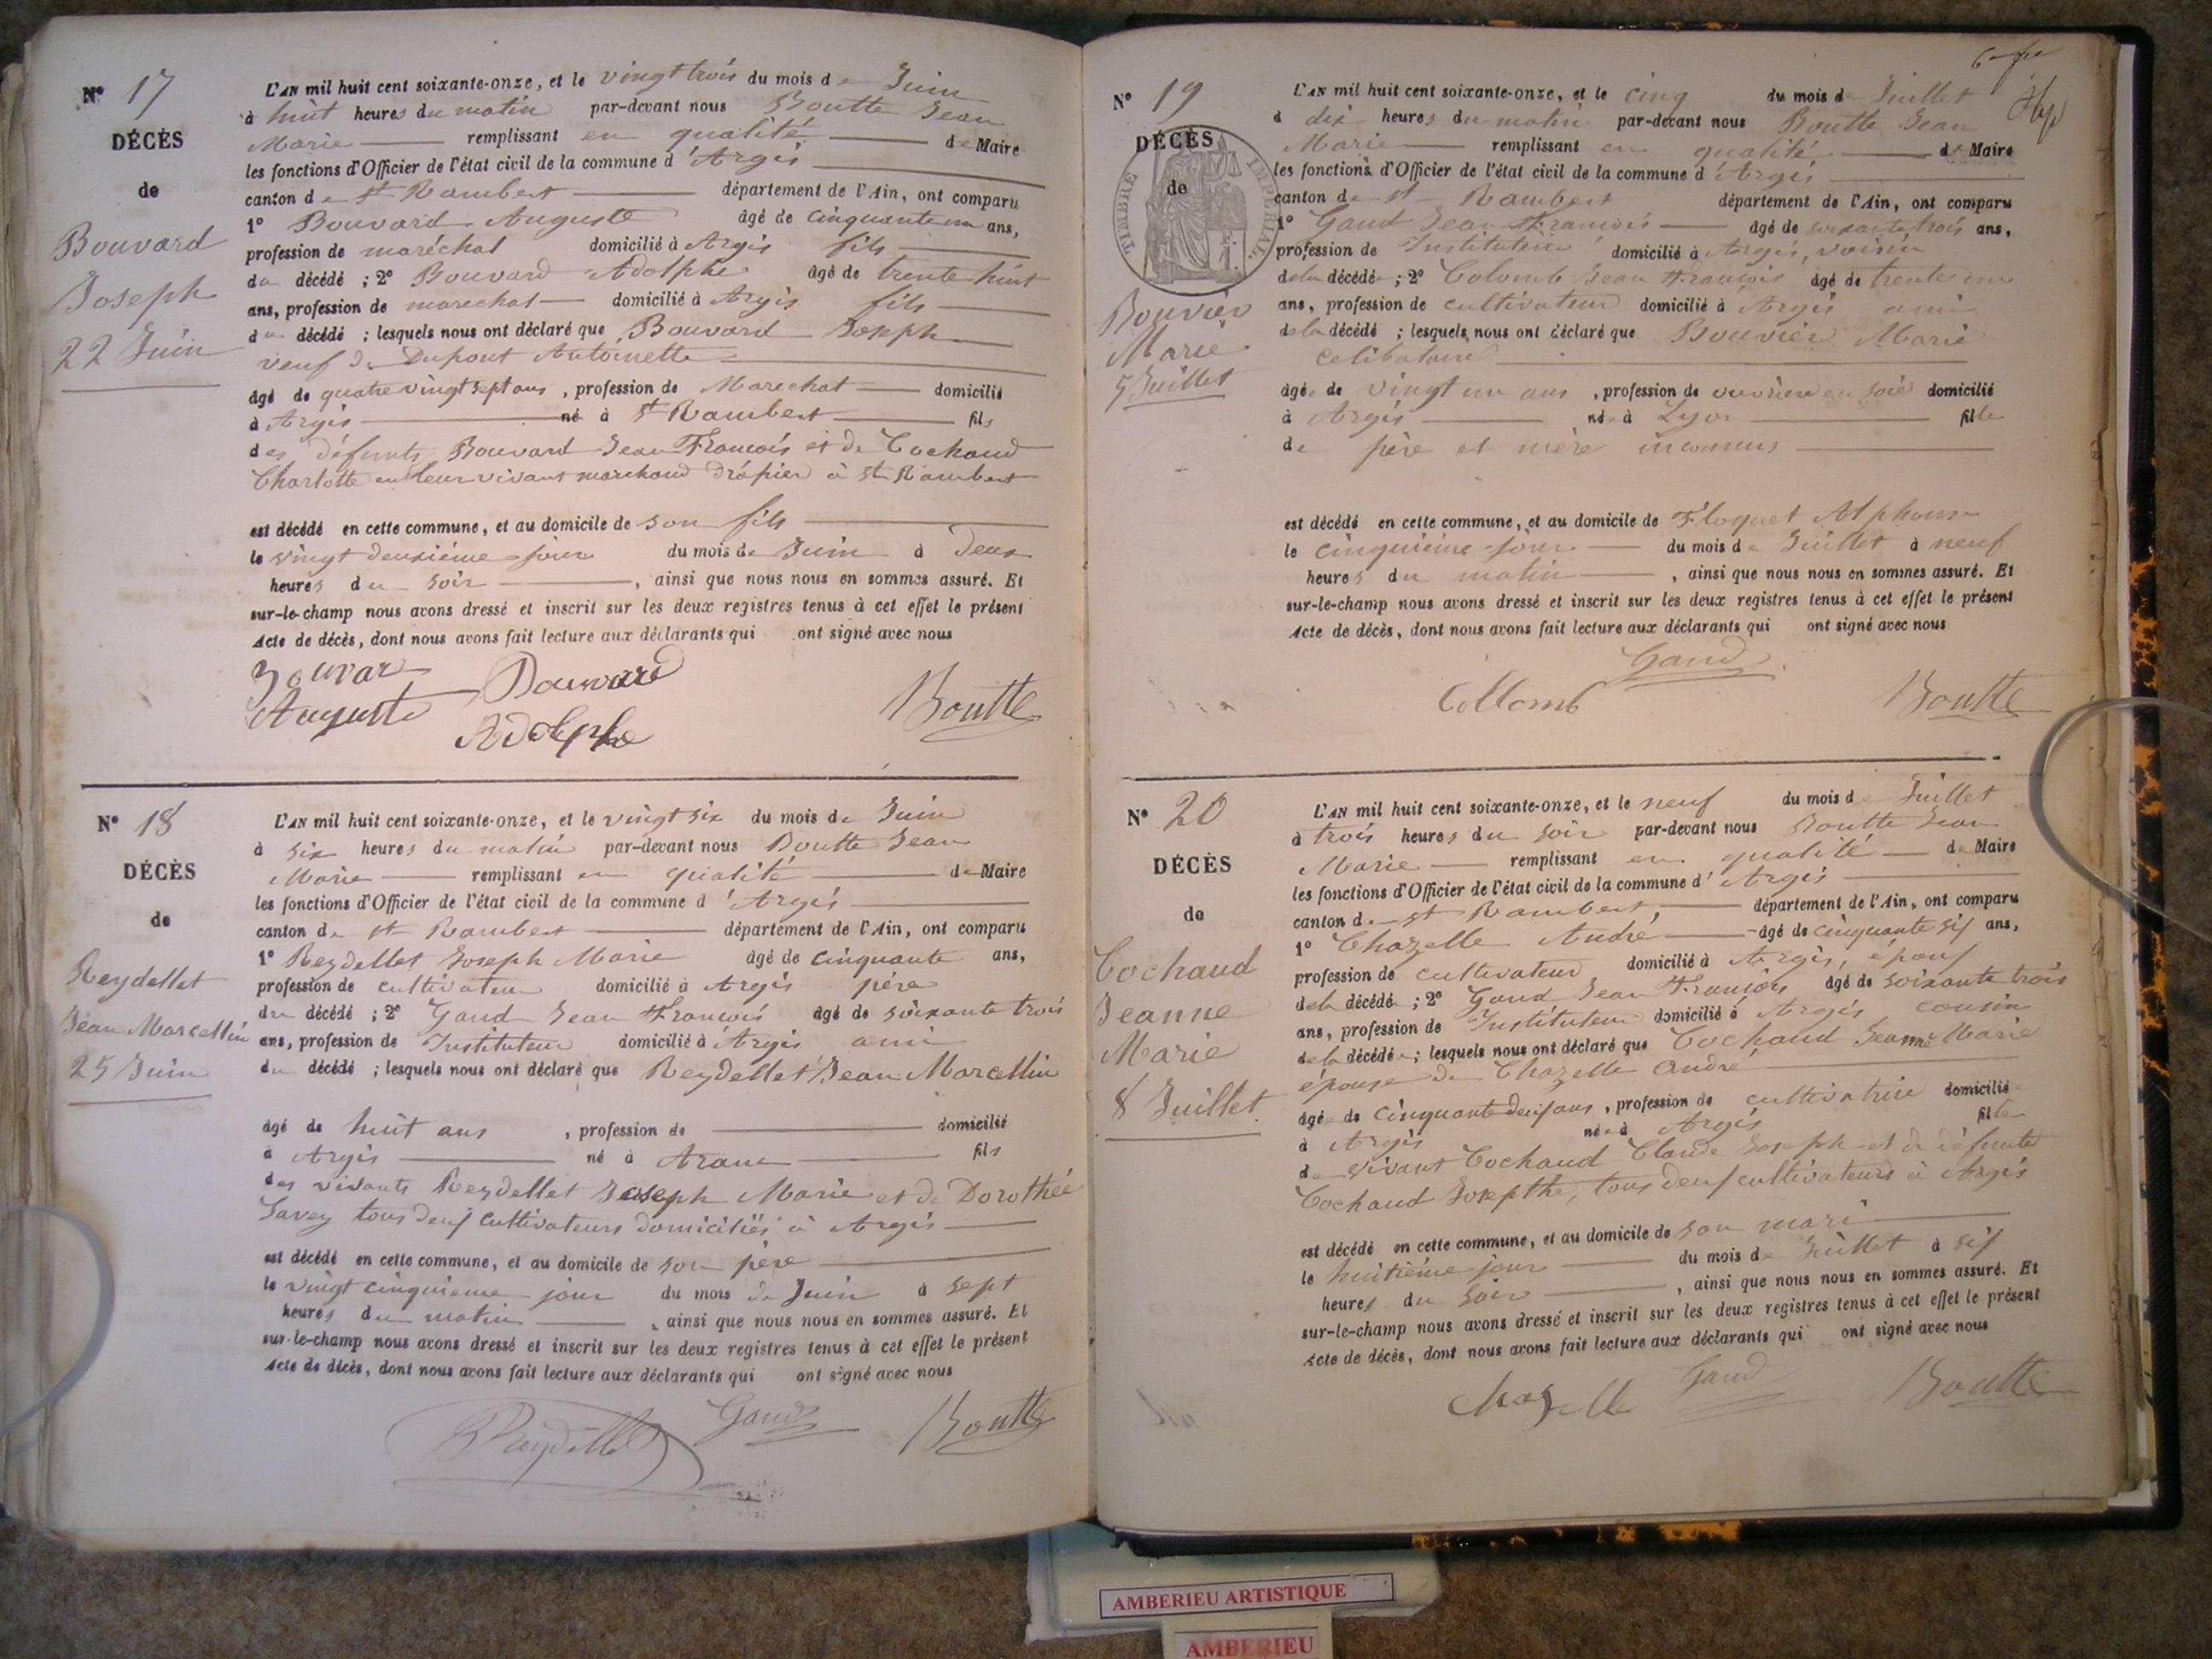 N° 17
DÉCÈS
de
Bouvard
Joseph
22 Juin
L'AN mil huit cent soixante-onze, et le vingt trois du mois de Juin
à huit heures du matin par-devant nous Boutte Jean
Marie remplissant en qualité de Maire
les fonctions d'Officier de l'état civil de la commune d'Argis
canton de St Rambert département de l'Ain, ont comparu
1° Bouvard Auguste âgé de cinquante un ans,
profession de maréchal domicilié à Argis fils
du décédé ; 2° Bouvard Adolphe âgé de trente huit
ans, profession de marechal domicilié à Argis fils
du décédé ; lesquels nous ont déclaré que Bouvard Joseph
veuf de Dupont Antoinette
âgé de quatre vingt sept ans, profession de Marechal domicilié
à Argis né à St Rambert fils
des défunts Bouvard Jean François et de Cochaud
Charlotte en leur vivant marchand drapier à St Rambert
est décédé en cette commune, et au domicile de son fils
le vingt deuxième jour du mois de Juin à Deux
heures du soir, ainsi que nous nous en sommes assuré. Et
sur-le-champ nous avons dressé et inscrit sur les deux registres tenus à cet effet le présent
Acte de décès, dont nous avons fait lecture aux déclarants qui ont signé avec nous
Bouvar Bouvard
Auguste Adolphe Boutte
N° 18
DÉCÈS
de
Reydellet
Jean Marcellin
25 Juin
L'AN mil huit cent soixante-onze, et le vingt six du mois de Juin
à six heures du matin par-devant nous Boutte Jean
Marie remplissant en qualité de Maire
les fonctions d'Officier de l'état civil de la commune d'Argis
canton de St Rambert département de l'Ain, ont comparu
1° Reydellet Joseph Marie âgé de cinquante ans,
profession de cultivateur domicilié à Argis père
du décédé ; 2° Gaud Jean François âgé de soixante trois
ans, profession de Instituteur domicilié à Argis ami
du décédé ; lesquels nous ont déclaré que Reydellet Jean Marcellin
âgé de huit ans, profession de domicilié
à Argis né à Aranc fils
des vivants Reydellet Joseph Marie et de Dorothée
Savey tous deux cultivateurs domiciliés à Argis
est décédé en cette commune, et au domicile de son père
le vingt cinquieme jour du mois de Juin à sept
heures du matin, ainsi que nous nous en sommes assuré. Et
sur-le-champ nous avons dressé et inscrit sur les deux registres tenus à cet effet le présent
Acte de décès, dont nous avons fait lecture aux déclarants qui ont signé avec nous
Reydellet Gaud Boutte
N° 19
DÉCÈS
de
TIMBRE IMPERIAL
Bouvier
Marie
5 Juillet
L'AN mil huit cent soixante-onze, et le cinq du mois de Juillet
à dix heures du matin par-devant nous Boutte Jean
Marie remplissant en qualité de Maire
les fonctions d'Officier de l'état civil de la commune d'Argis,
canton de St Rambert département de l'Ain, ont comparu
1° Gaud Jean François âgé de soixante trois ans,
profession de Instituteur domicilié à Argis, voisin
de la décédée ; 2° Colomb Jean François âgé de trente un
ans, profession de cultivateur domicilié à Argis ami
de la décédé ; lesquels nous ont déclaré que Bouvier Marie
celibataire
âgée de vingt un ans, profession de ouvrière en soie domicilié
à Argis née à Lyon fille
de père et mère inconnus
est décédé en cette commune, et au domicile de Floquet Alphonse
le cinquieme jour du mois de Juillet à neuf
heures du matin, ainsi que nous nous en sommes assuré. Et
sur-le-champ nous avons dressé et inscrit sur les deux registres tenus à cet effet le présent
Acte de décès, dont nous avons fait lecture aux déclarants qui ont signé avec nous
Gaud
Collomb Boutte
N° 20
DÉCÈS
de
Cochaud
Jeanne
Marie
8 Juillet
L'AN mil huit cent soixante-onze, et le neuf du mois de Juillet
à trois heures du soir par-devant nous Boutte Jean
Marie remplissant en qualité de Maire
les fonctions d'Officier de l'état civil de la commune d'Argis
canton de St Rambert, département de l'Ain, ont comparu
1° Chazelle André âgé de cinquante six ans,
profession de cultivateur domicilié à Argis, époux
de la décédée ; 2° Gaud Jean François âgé de soixante trois
ans, profession de Instituteur domicilié à Argis cousin
de la décédée ; lesquels nous ont déclaré que Cochaud Jeanne Marie
épouse de Chazelle André
âgé de cinquante deux ans, profession de cultivatrice domicilié
à Argis née à Argis fille
de vivant Cochaud Claude Joseph et de défunte
Cochaud Josepthe, tous deux cultivateurs à Argis
est décédé en cette commune, et au domicile de son mari
le huitième jour du mois de Juillet à six
heures du soir, ainsi que nous nous en sommes assuré. Et
sur-le-champ nous avons dressé et inscrit sur les deux registres tenus à cet effet le présent
Acte de décès, dont nous avons fait lecture aux déclarants qui ont signé avec nous
Chazelle Gaud Boutte
AMBERIEU ARTISTIQUE
AMBERIEU